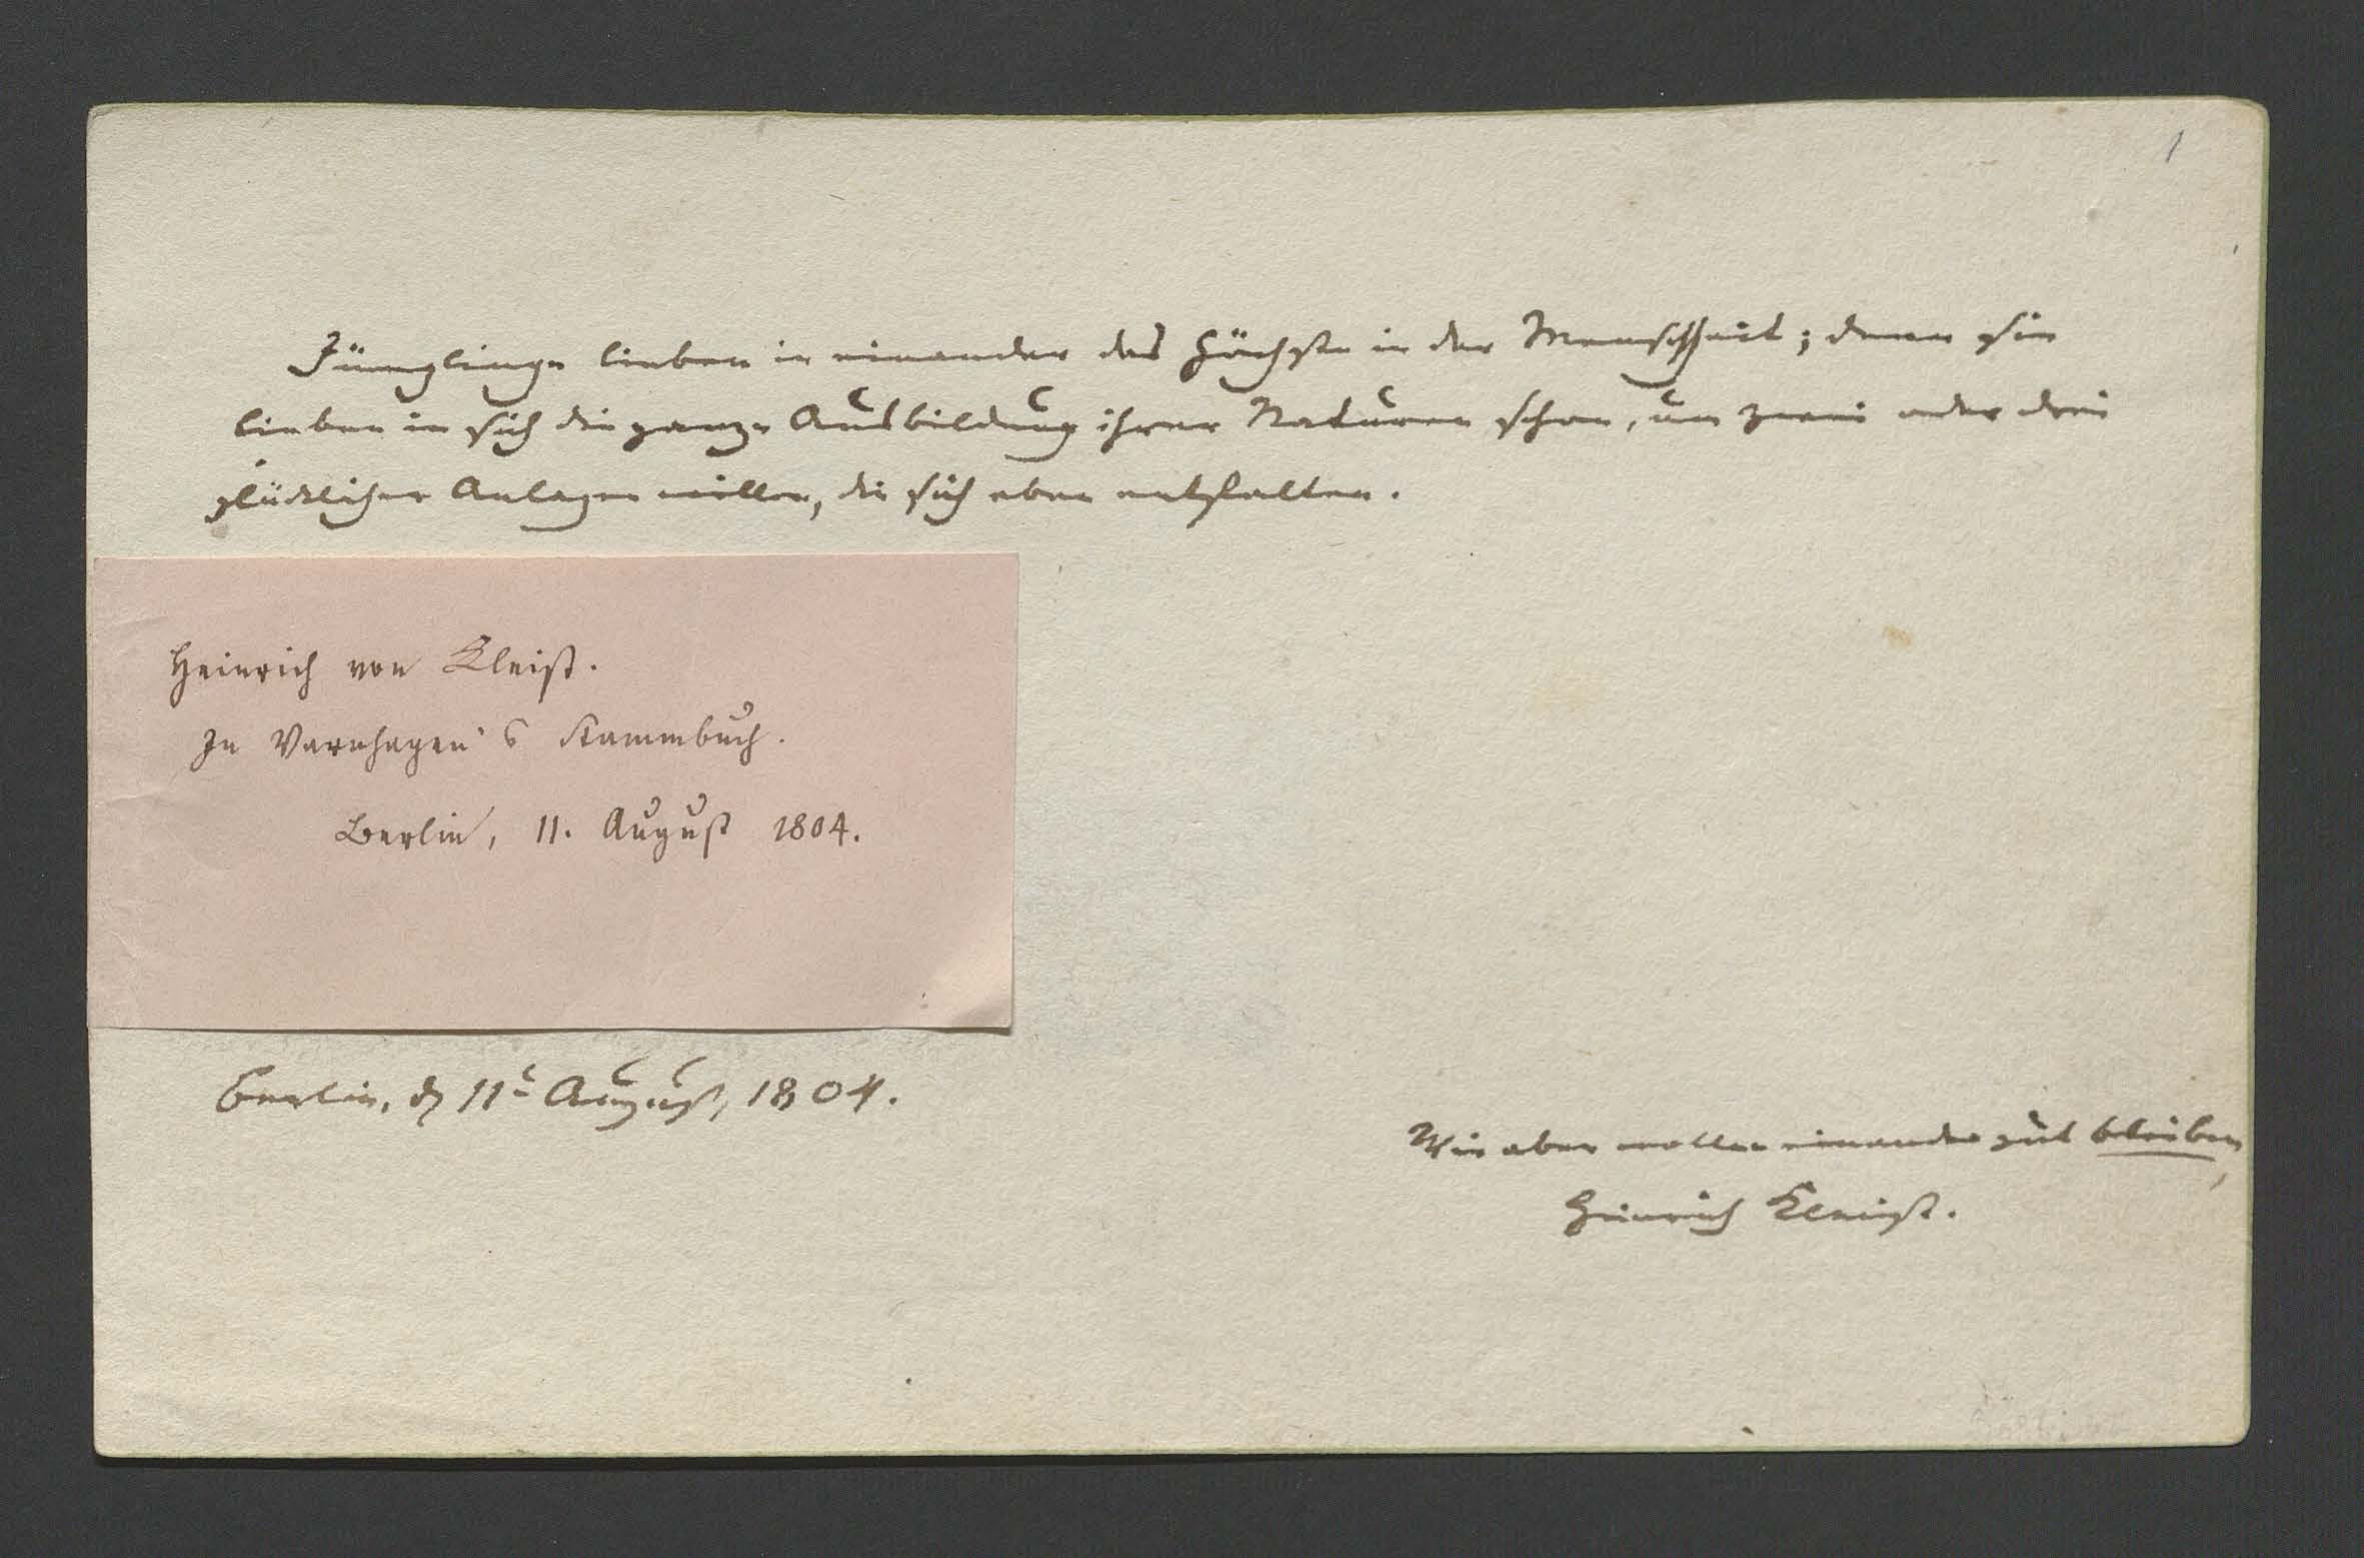 1
Jünglinge lieben in einander das Höchste in der Menschheit; denn sie
lieben in sich die ganze Ausbildung ihrer Naturen schon, um zwei oder drei
glücklicher Anlagen willen, die sich eben entfalten.
Heinrich von Kleist.
In Varnhagen's Stammbuch.
Berlin, 11. August 1804.
Berlin, d 11t August, 1804.
Wir aber wollen einander gut bleiben,
Heinrich Kleist.